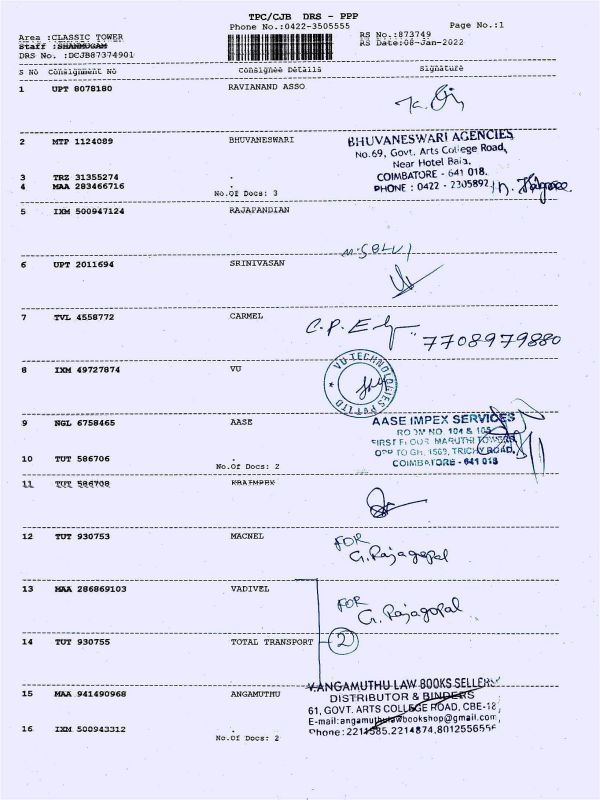 TPC/CJB DRS - PPP
Phone No.:0422-3505555 Page No.:1
Area :CLASSIC TOWER RS No.:873749
Staff :SHANMUGAM RS Date:08-Jan-2022
DRS No. :DCJB87374901
S No Consignment No Consignee Details Signature
1 UPT 8078180 RAVIANAND ASSO
2 MTP 1124089 BHUVANESWARI
BHUVANESWARI AGENCIES
No.69, Govt. Arts College Road,
Near Hotel
COIMBATORE - 641 018.
PHONE : 0422 - 2305892
3 TRZ 31355274 .
4 MAA 283466716 .
No.Of Docs: 3
5 IXM 500947124 RAJAPANDIAN
M.SELVI
6 UPT 2011694 SRINIVASAN
7 TVL 4558772 CARMEL
7708979880
8 IXM 49727874 VU
VU TECHNOLOGIES PVT LTD
9 NGL 6758465 AASE
AASE IMPEX SERVICES
ROOM NO. 104 & 105
FIRST FLOOR MARUTHI TOWERS
OPP TO GH, 1569, TRICHY ROAD,
COIMBATORE - 641 018
10 TUT 586706 .
No.Of Docs: 2
11 TUT 586708
12 TUT 930753 MACNEL
FOR
G. Rajagopal
13 MAA 286869103 VADIVEL
FOR
G. Rajagopal
14 TUT 930755 TOTAL TRANSPORT
2
15 MAA 941490968 ANGAMUTHU
V.ANGAMUTHU LAW BOOKS SELLERS
DISTRIBUTOR & BINDERS
61, GOVT. ARTS COLLEGE ROAD, CBE-18
E-mail:angamuthulawbookshop@gmail.com
Phone: 2211585,2214874,8012556556
16 IXM 500943312 .
No.Of Docs: 2